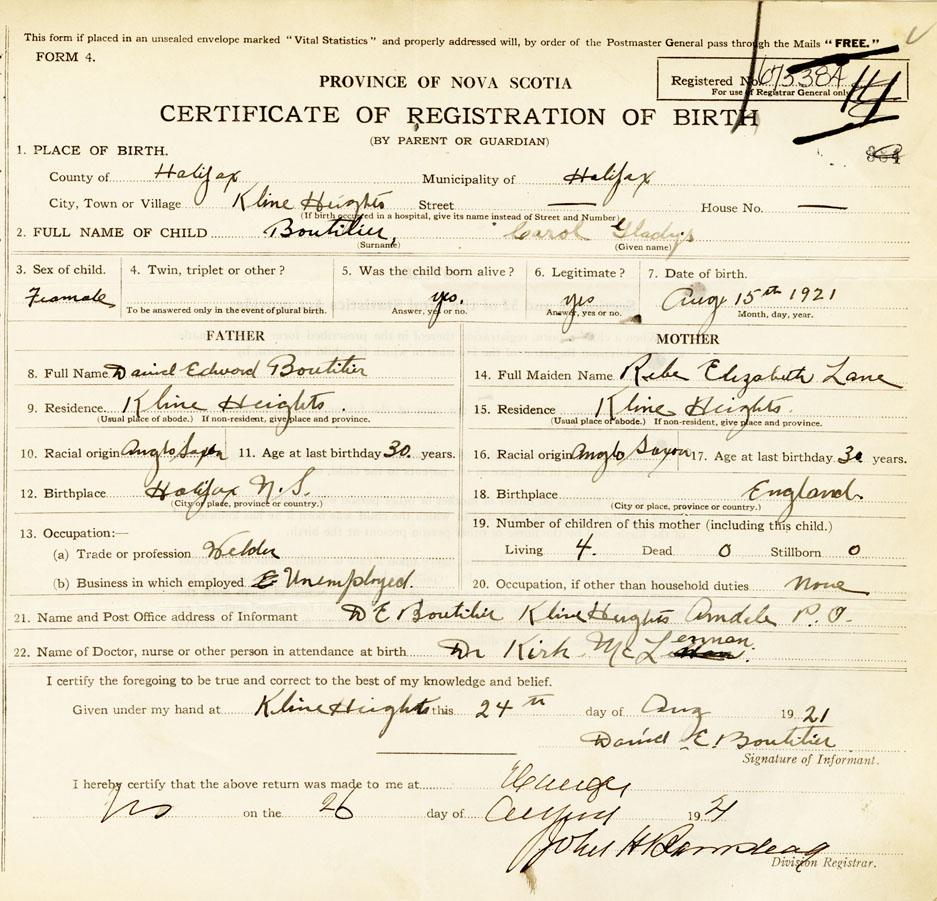 This form if placed in an unsealed envelope marked "Vital Statistics" and properly addressed will, by order of the Postmaster General pass through the Mails "FREE."
FORM 4.
PROVINCE OF NOVA SCOTIA
Registered No. 675384
For use of Registrar General only
14
CERTIFICATE OF REGISTRATION OF BIRTH
(BY PARENT OR GUARDIAN)
1. PLACE OF BIRTH.
County of Halifax Municipality of Halifax
City, Town or Village Kline Heights Street — House No. —
(If birth occurred in a hospital, give its name instead of Street and Number)
2. FULL NAME OF CHILD Boutilier, Carol Gladys
(Surname) (Given name)
3. Sex of child. 4. Twin, triplet or other? 5. Was the child born alive? 6. Legitimate? 7. Date of birth.
Feamale yes. yes Aug 15th 1921
To be answered only in the event of plural birth. Answer, yes or no. Answer, yes or no. Month, day, year.
FATHER
8. Full Name Daniel Edword Boutilier
9. Residence Kline Heights.
(Usual place of abode.) If non-resident, give place and province.
10. Racial origin Anglo Saxon 11. Age at last birthday 30 years.
12. Birthplace Halifax N.S.
(City or place, province or country.)
13. Occupation:—
(a) Trade or profession Welder
(b) Business in which employed Unemployed.
MOTHER
14. Full Maiden Name Elizabeth Lane
15. Residence Kline Heights.
(Usual place of abode.) If non-resident, give place and province.
16. Racial origin Anglo Saxon 17. Age at last birthday 30 years.
18. Birthplace England.
(City or place, province or country.)
19. Number of children of this mother (including this child.)
Living 4. Dead 0 Stillborn 0
20. Occupation, if other than household duties None
21. Name and Post Office address of Informant D E Boutilier Kline Heights Armdale P.O.
22. Name of Doctor, nurse or other person in attendance at birth Dr Kirk McLennan.
I certify the foregoing to be true and correct to the best of my knowledge and belief.
Given under my hand at Kline Heights this 24th day of Aug 1921
Daniel E. Boutilier
Signature of Informant.
I hereby certify that the above return was made to me at
NS on the 26 day of August 1921
John H
Division Registrar.